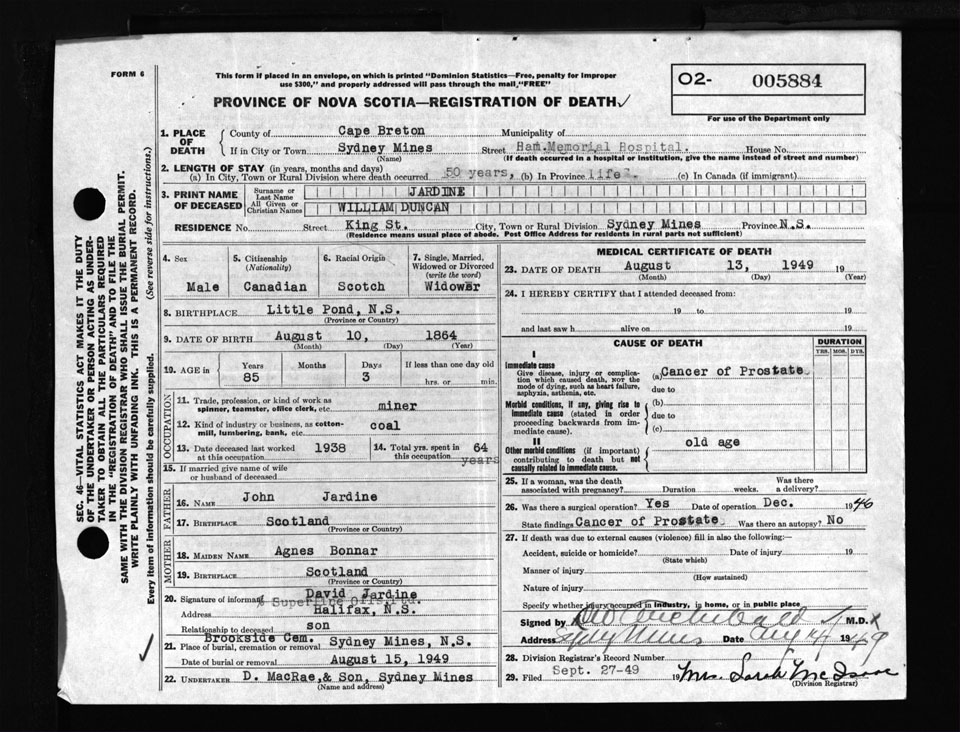 FORM 6
This form if placed in an envelope, on which is printed "Dominion Statistics—Free, penalty for improper
use $300," and properly addressed will pass through the mail, "FREE"
O2- 005884
For use of the Department only
PROVINCE OF NOVA SCOTIA—REGISTRATION OF DEATH
1. PLACE OF DEATH
County of Cape Breton Municipality of
If in City or Town Sydney Mines Street Ham.Memorial Hospital. House No.
(Name) (If death occurred in a hospital or institution, give the name instead of street and number)
2. LENGTH OF STAY (in years, months and days)
(a) In City, Town or Rural Division where death occurred 50 years, (b) In Province life. (c) In Canada (if immigrant)
3. PRINT NAME OF DECEASED
Surname or Last Name JARDINE
All Given or Christian Names WILLIAM DUNCAN
RESIDENCE No. Street King St. City, Town or Rural Division Sydney Mines Province N.S.
(Residence means usual place of abode. Post Office Address for residents in rural parts not sufficient)
4. Sex
Male
5. Citizenship
(Nationality)
Canadian
6. Racial Origin
Scotch
7. Single, Married,
Widowed or Divorced
(write the word)
Widower
8. BIRTHPLACE Little Pond, N.S.
(Province or Country)
9. DATE OF BIRTH August 10, 1864
(Month) (Day) (Year)
10. AGE in
Years Months Days If less than one day old
85 3 hrs. or min.
OCCUPATION
11. Trade, profession or kind of work as
spinner, teamster, office clerk, etc. miner
12. Kind of industry or business, as cotton-
mill, lumbering, bank, etc. coal
13. Date deceased last worked
at this occupation 1938
14. Total yrs. spent in
this occupation 64 years
15. If married give name of wife
or husband of deceased
FATHER
16. NAME John Jardine
17. BIRTHPLACE Scotland
(Province or Country)
MOTHER
18. MAIDEN NAME Agnes Bonnar
19. BIRTHPLACE Scotland
(Province or Country)
20. Signature of informant David Jardine
Address Halifax, N.S.
Relationship to deceased son
21. Place of burial, cremation or removal Brookside Cem. Sydney Mines, N.S.
Date of burial or removal August 15, 1949
22. UNDERTAKER D. MacRae,& Son, Sydney Mines
(Name and address)
MEDICAL CERTIFICATE OF DEATH
23. DATE OF DEATH August 13, 1949 19
(Month) (Day) (Year)
24. I HEREBY CERTIFY that I attended deceased from:
19 to 19
and last saw h alive on 19
CAUSE OF DEATH
DURATION
YRS. MOS. DYS.
I
Immediate cause
Give disease, injury or compli-
cation which caused death, NOT the
mode of dying, such as heart failure,
asphyxia, asthenia, etc.
(a) Cancer of Prostate
due to
Morbid conditions, if any, giving rise to
immediate cause (stated in order
proceeding backwards from im-
mediate cause).
(b)
due to
(c)
II
Other morbid conditions (if important)
contributing to death but not
causally related to immediate cause.
old age
25. If a woman, was the death
associated with pregnancy? Duration weeks. Was there
a delivery?
26. Was there a surgical operation? Yes Date of operation Dec. 1946
State findings Cancer of Prostate Was there an autopsy? No
27. If death was due to external causes (violence) fill in also the following:—
Accident, suicide or homicide? Date of injury 19
(State which)
Manner of injury
(How sustained)
Nature of injury
Specify whether injury occurred in industry, in home, or in public place
Signed by Archibald M.D.
Address Sydney Mines Date Aug 14 1949
28. Division Registrar's Record Number
29. Filed Sept. 27-49 19 Mrs. Sarah McIsaac
(Division Registrar)
SEC. 46—VITAL STATISTICS ACT MAKES IT THE DUTY
OF THE UNDERTAKER OR PERSON ACTING AS UNDER-
TAKER TO OBTAIN ALL THE PARTICULARS REQUIRED
IN THE "REGISTRATION OF DEATH" AND TO FILE THE
SAME WITH THE DIVISION REGISTRAR WHO SHALL ISSUE THE BURIAL PERMIT.
WRITE PLAINLY WITH UNFADING INK. THIS IS A PERMANENT RECORD.
Every item of information should be carefully supplied. (See reverse side for instructions.)